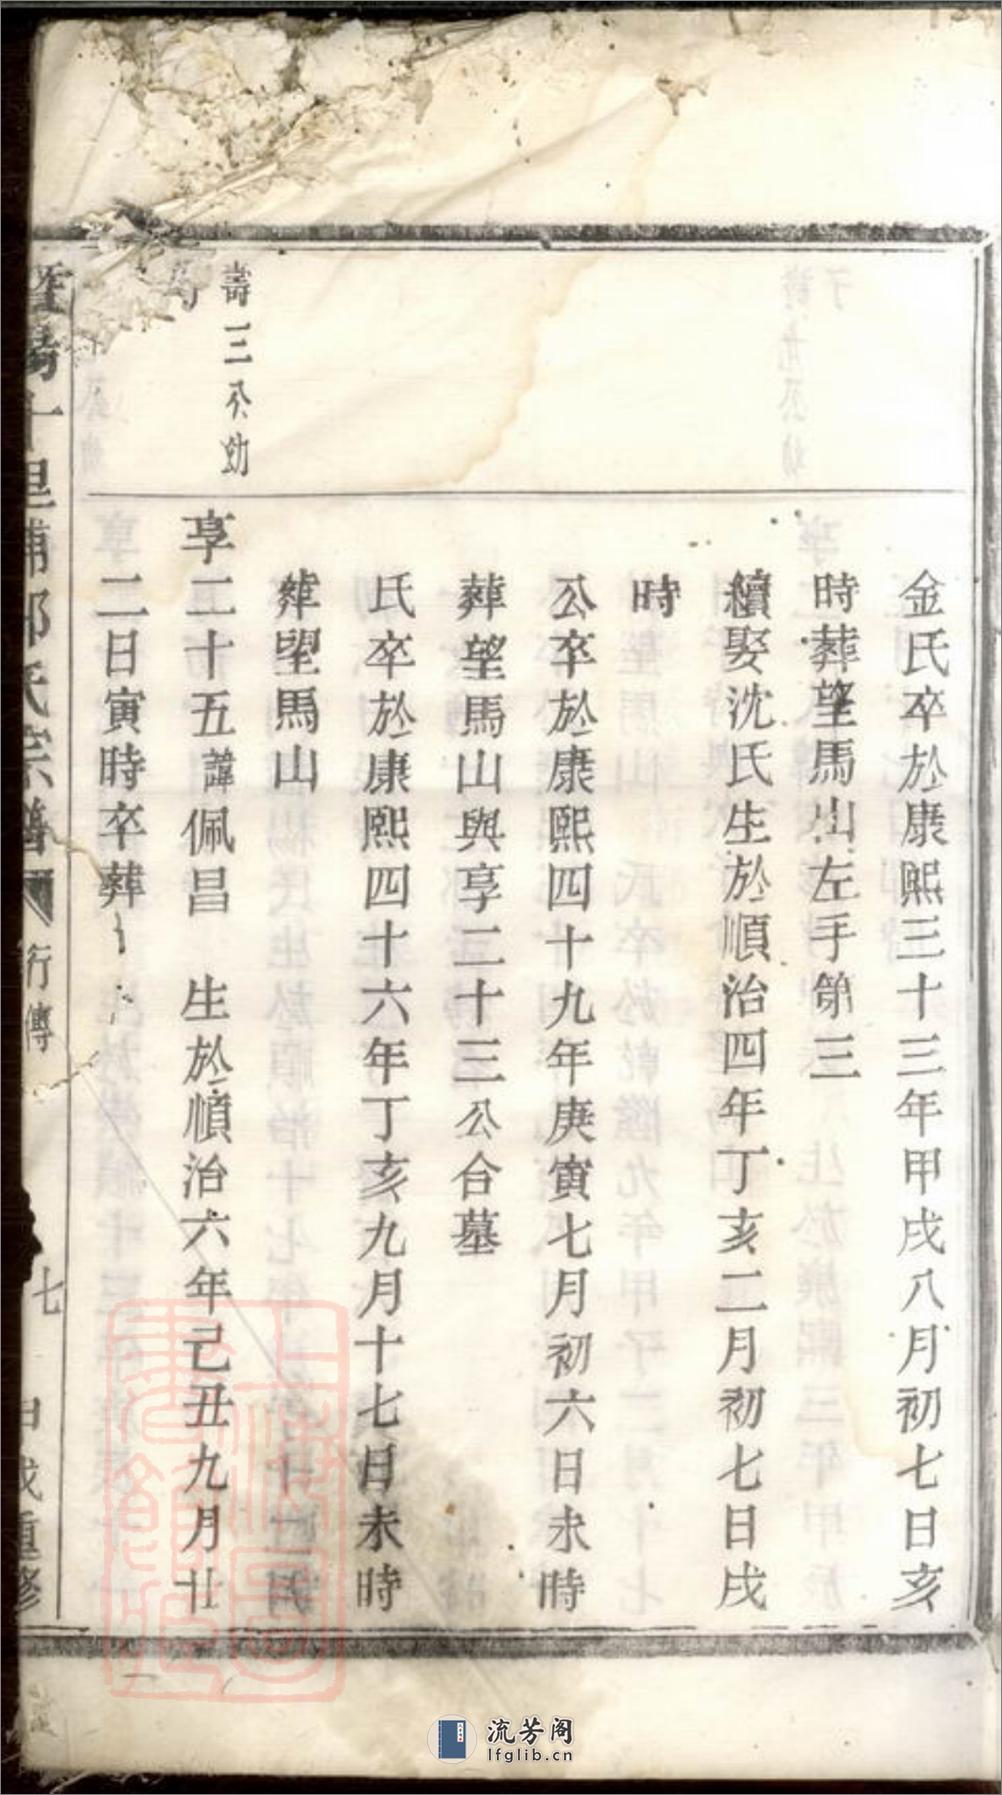 金氏卒於康熙三十三年甲戌八月初七日亥
時葬望馬山左手第三
續娶沈氏生於順治四年丁亥二月初七日戌
時
公卒於康熙四十九年庚寅七月初六日未時
葬望馬山與享二十三公合墓
氏卒於康熙四十六年丁亥九月十七日未時
葬望馬山
壽三公幼
享二十五諱佩昌 生於順治六年己丑九月廿
二日寅時卒葬
暨陽十里埔郭氏宗譜 行傳 七 戌重修
流芳阁
lfglib.cn